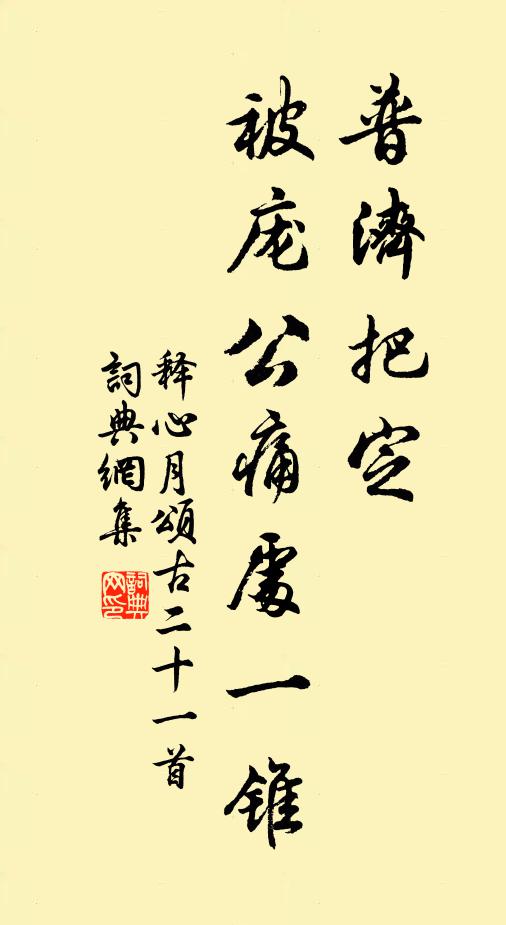 普濟把定
被庞公痛處一錐
释心月頌古二十一首
詞典網集
詞典網印